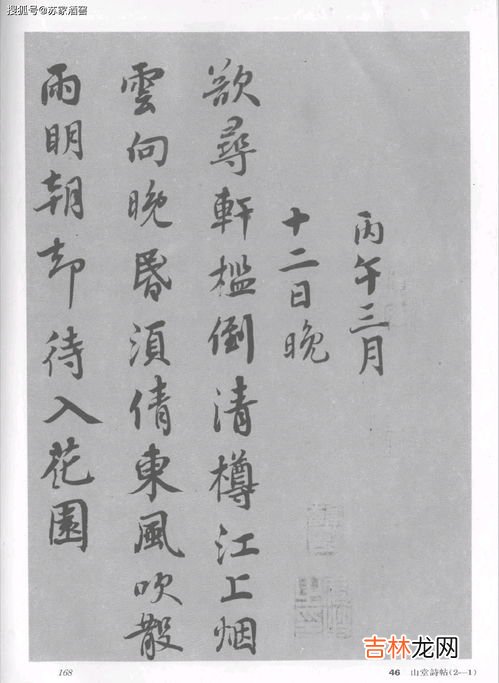 搜狐号@苏家酒窖
丙午三月
十二日晚
欲尋軒檻倒清樽江上烟
雲向晚昬須倩東風吹散
雨明朝却待入花園
168
46 山堂詩帖(2—1)
吉林龙网